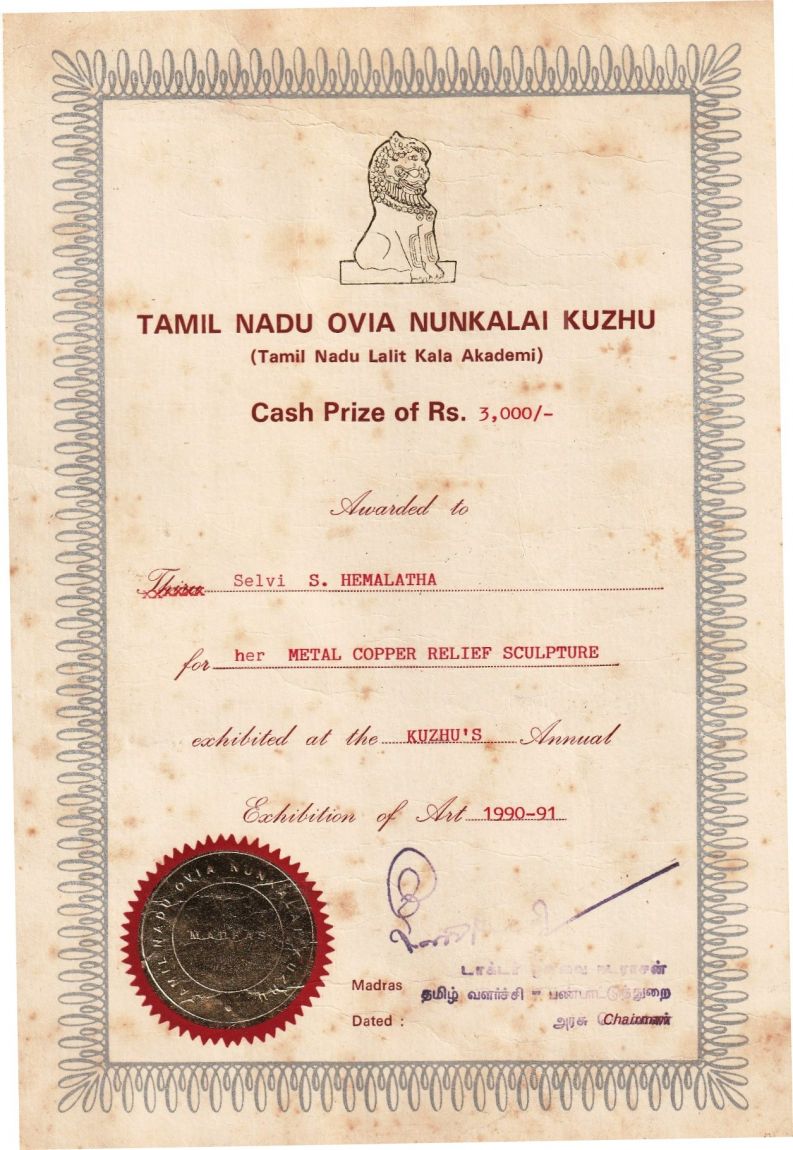 TAMIL NADU OVIA NUNKALAI KUZHU
(Tamil Nadu Lalit Kala Akademi)
Cash Prize of Rs. 3,000/-
Awarded to
Selvi S. HEMALATHA
for her METAL COPPER RELIEF SCULPTURE
exhibited at the KUZHU'S Annual
Exhibition of Art 1990-91
TAMIL NADU OVIA NUNKALAI KUZHU
MADRAS
டாக்டர்
Madras
தமிழ் வளர்ச்சி பண்பாட்டுத்துறை
Dated :
அரசு
Chairman